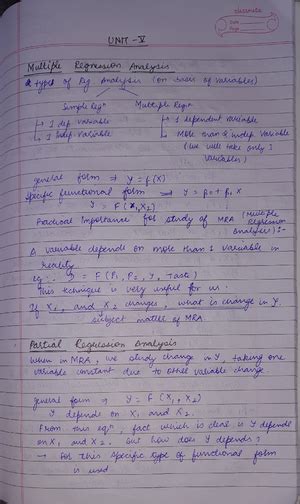 UNIT - V
Multiple Regression Analysis
* types of Reg Analysis (on basis of variables)
Simple Regⁿ Multiple Regⁿ
→ 1 dep variable → 1 dependent variable
→ 1 indep variable → More than 1 indep variable
(we will take only 2
variables)
general form ⇒ Y = f(X)
Specific functional form ⇒ Y = β0 + β1 X
Y = F(X1, X2)
Practical Importance for study of MRA (Multiple
Regression
Analysis) :-
A variable depends on more than 1 variable in
reality.
eg:- = F(P1, P2, Y, Taste)
This technique is very useful for us:
If X1, and X2 changes, what is change in Y.
subject matter of MRA.
Partial Regression Analysis
When in MRA, we study change in Y, taking one
variable constant due to other variable change.
general form ⇒ Y = F(X1, X2)
Y depends on X1 and X2.
From this eqⁿ, fact which is clear is Y depends
on X1 and X2. But how does Y depends?
→ For this specific type of functional form
is used.